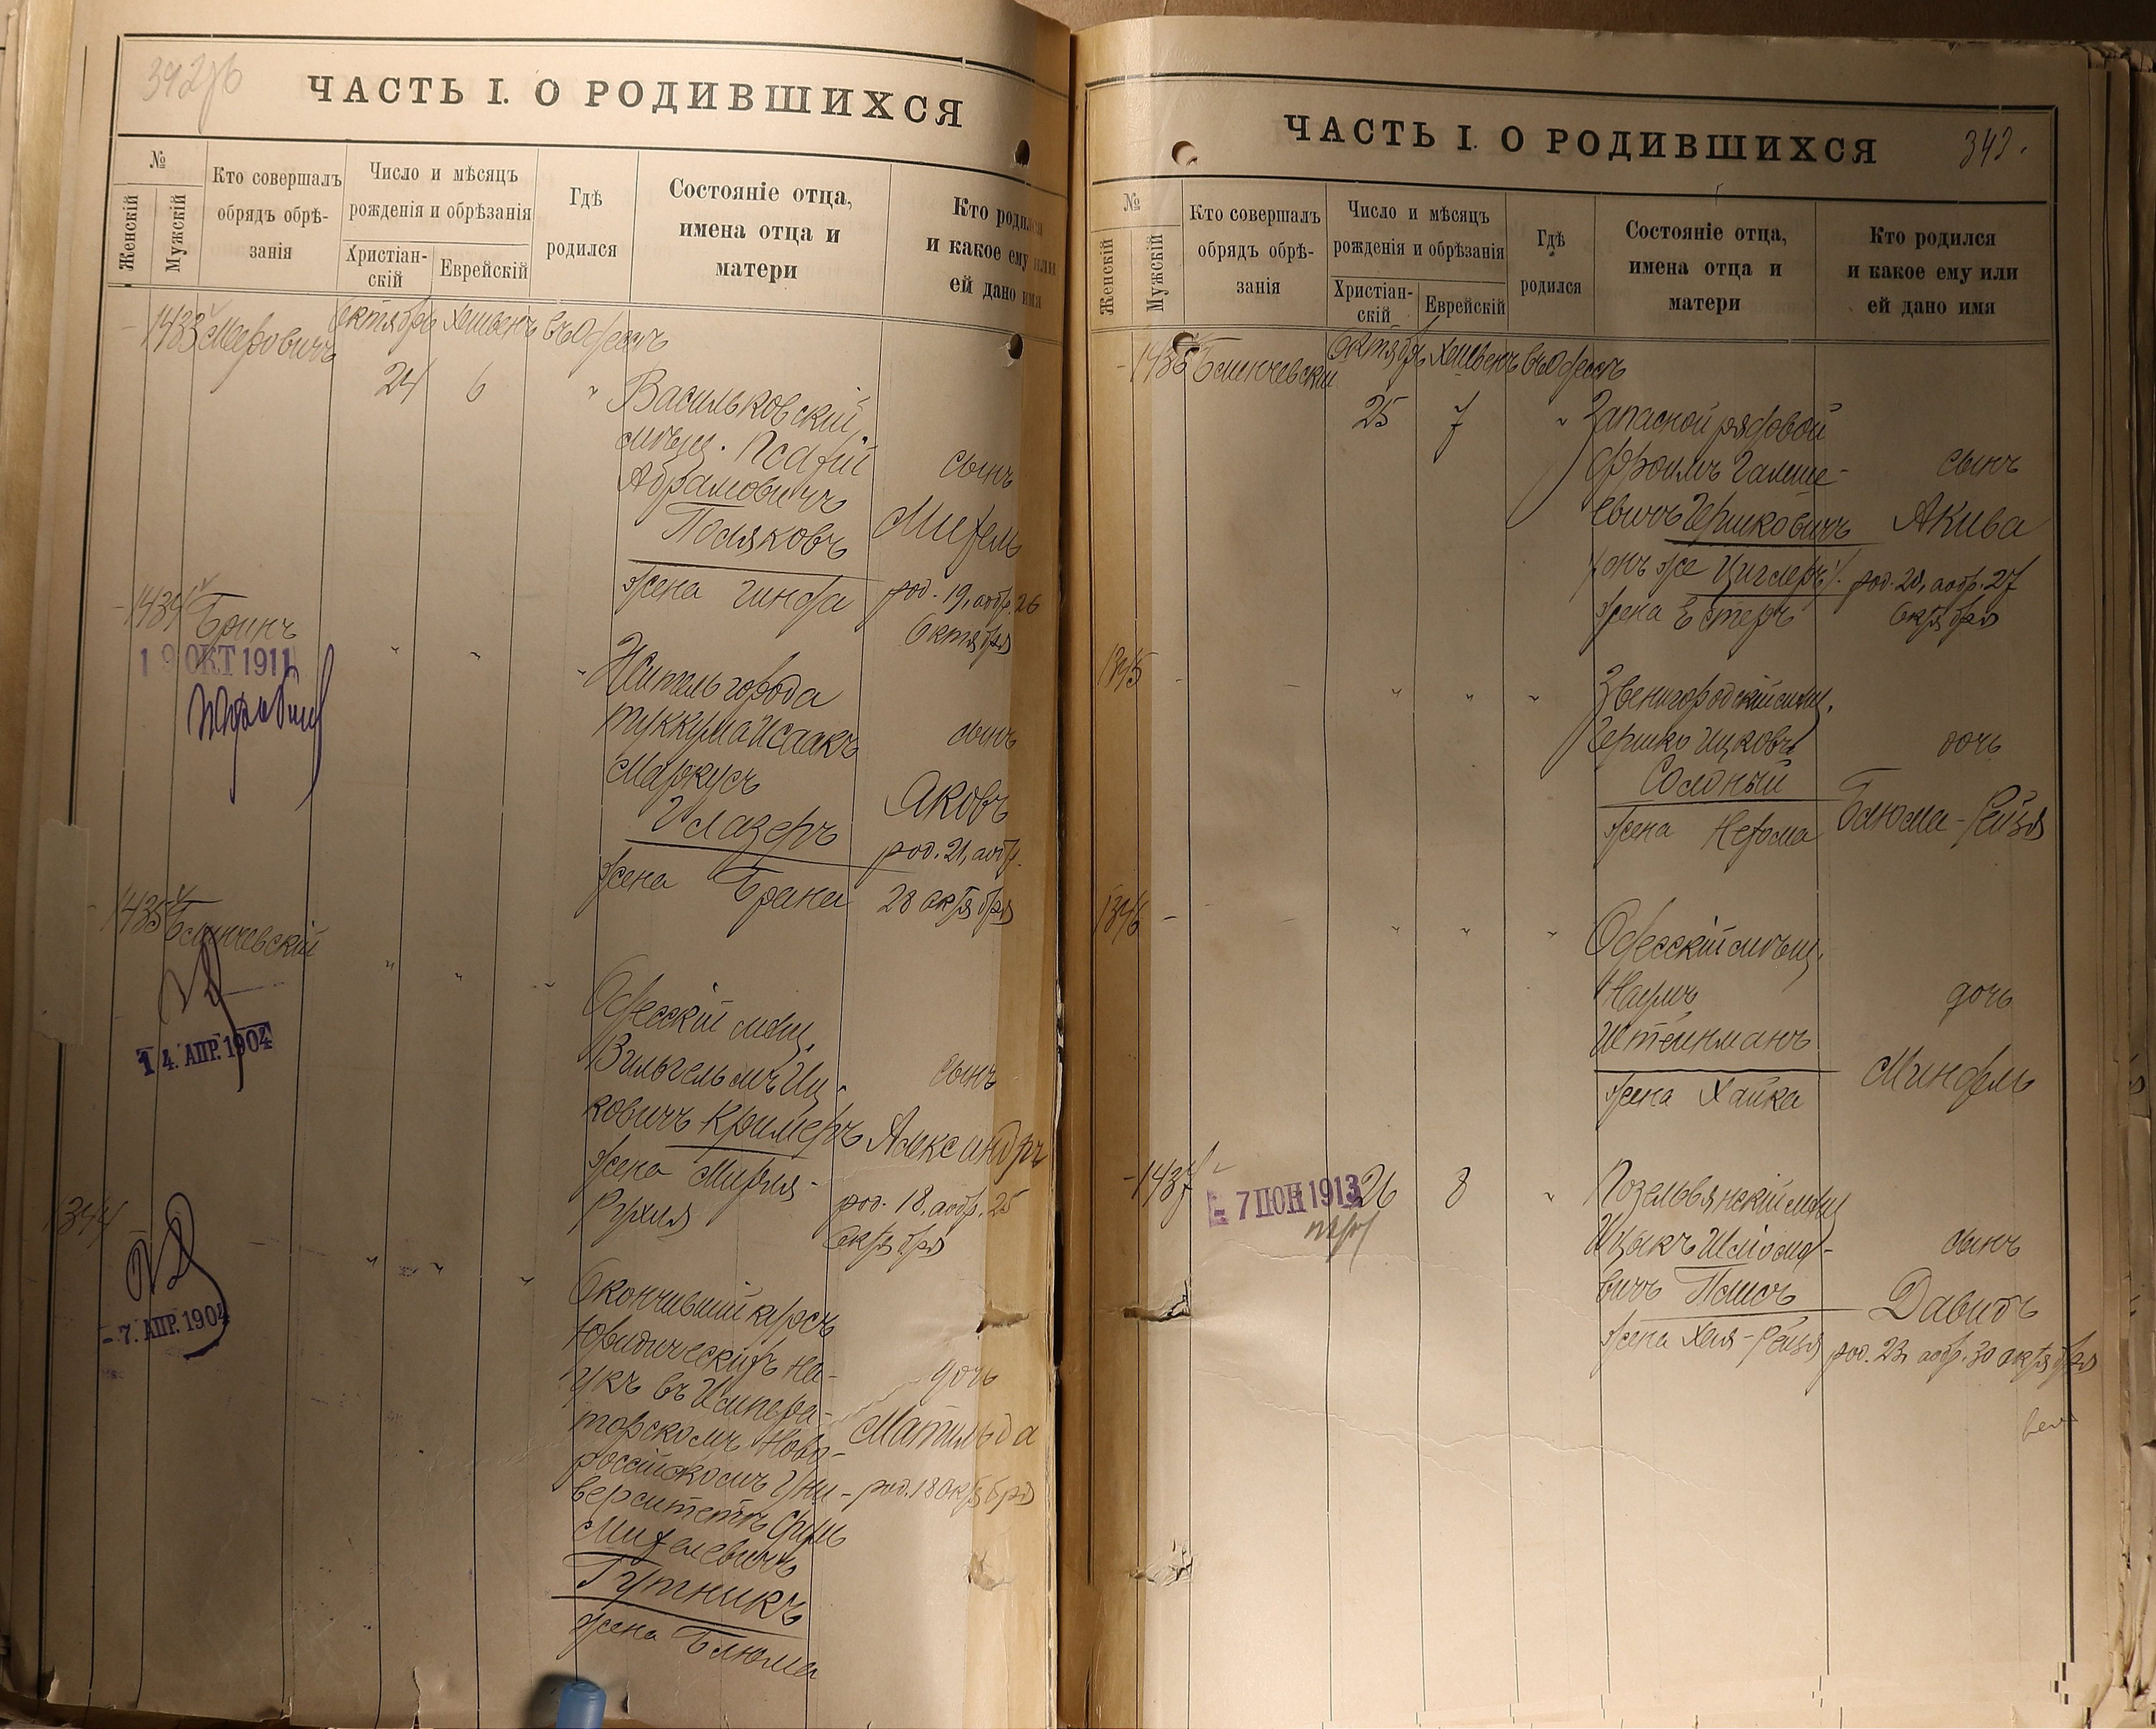 ЧАСТЬ I. О РОДИВШИХСЯ
№
Женскій
Мужскій
Кто совершалъ
обрядъ обрѣ-
занія
Число и мѣсяцъ
рожденія и обрѣзанія
Христіан-
скій
Еврейскій
Гдѣ
родился
Состояніе отца,
имена отца и
матери
Кто родился
и какое ему или
ей дано имя
1433 Меровичъ Октябрь Хешвенъ въ Одессѣ
24 6 " Васильковскій
мѣщ.
Абрамовичъ
Поляковъ
жена Гинда
сынъ
Михель
род. 19, аобр. 26
Октября
1434 Бринъ
19 ОКТ 1911
" " " Житель города
Туккума Исаакъ
Маркусъ
Глазеръ
жена Брана
сынъ
Яковъ
род. 21, аобр.
28 октября
1435
" " " Одесскій мѣщ.
Вильгельмъ Иц-
ковичъ Кримеръ
жена Мирля-
Рухля
сынъ
Александръ
род. 18, аобр. 25
Октября
14. АПР. 1904
1344
- 7. АПР. 1904
" " " Окончившій курсъ
Юридическихъ на-
укъ въ Импера-
торскомъ Ново-
россійскомъ Уни-
верситетѣ
Михелевичъ
Гутникъ
жена Блюма
дочь
Матильда
род. 18 октября
ЧАСТЬ I. О РОДИВШИХСЯ
342.
№
Женскій
Мужскій
Кто совершалъ
обрядъ обрѣ-
занія
Число и мѣсяцъ
рожденія и обрѣзанія
Христіан-
скій
Еврейскій
Гдѣ
родился
Состояніе отца,
имена отца и
матери
Кто родился
и какое ему или
ей дано имя
1436 Октябрь Хешвенъ въ Одессѣ
25 7 " Запасной рядовой
Фроимъ
Гершковичъ
/онъ же Циглеръ/.
жена Естеръ
сынъ
Акива
род. 20, аобр. 27
Октября
1345 - " " " Звенигородскій мѣщ.
Гершко Ицковъ
Солоный
жена Нехома
дочь
Блюма-Рейзя
1346 - " " " Одесскій мѣщ.
Наумъ
Штейнманъ
жена Хайка
дочь
Миндель
1437 26 8 "
- 7 ІЮН 1913
Ицыкъ Шліомо-
вичъ
жена Хая-Рейзя
сынъ
Давидъ
род. 23, аобр. 30 октября